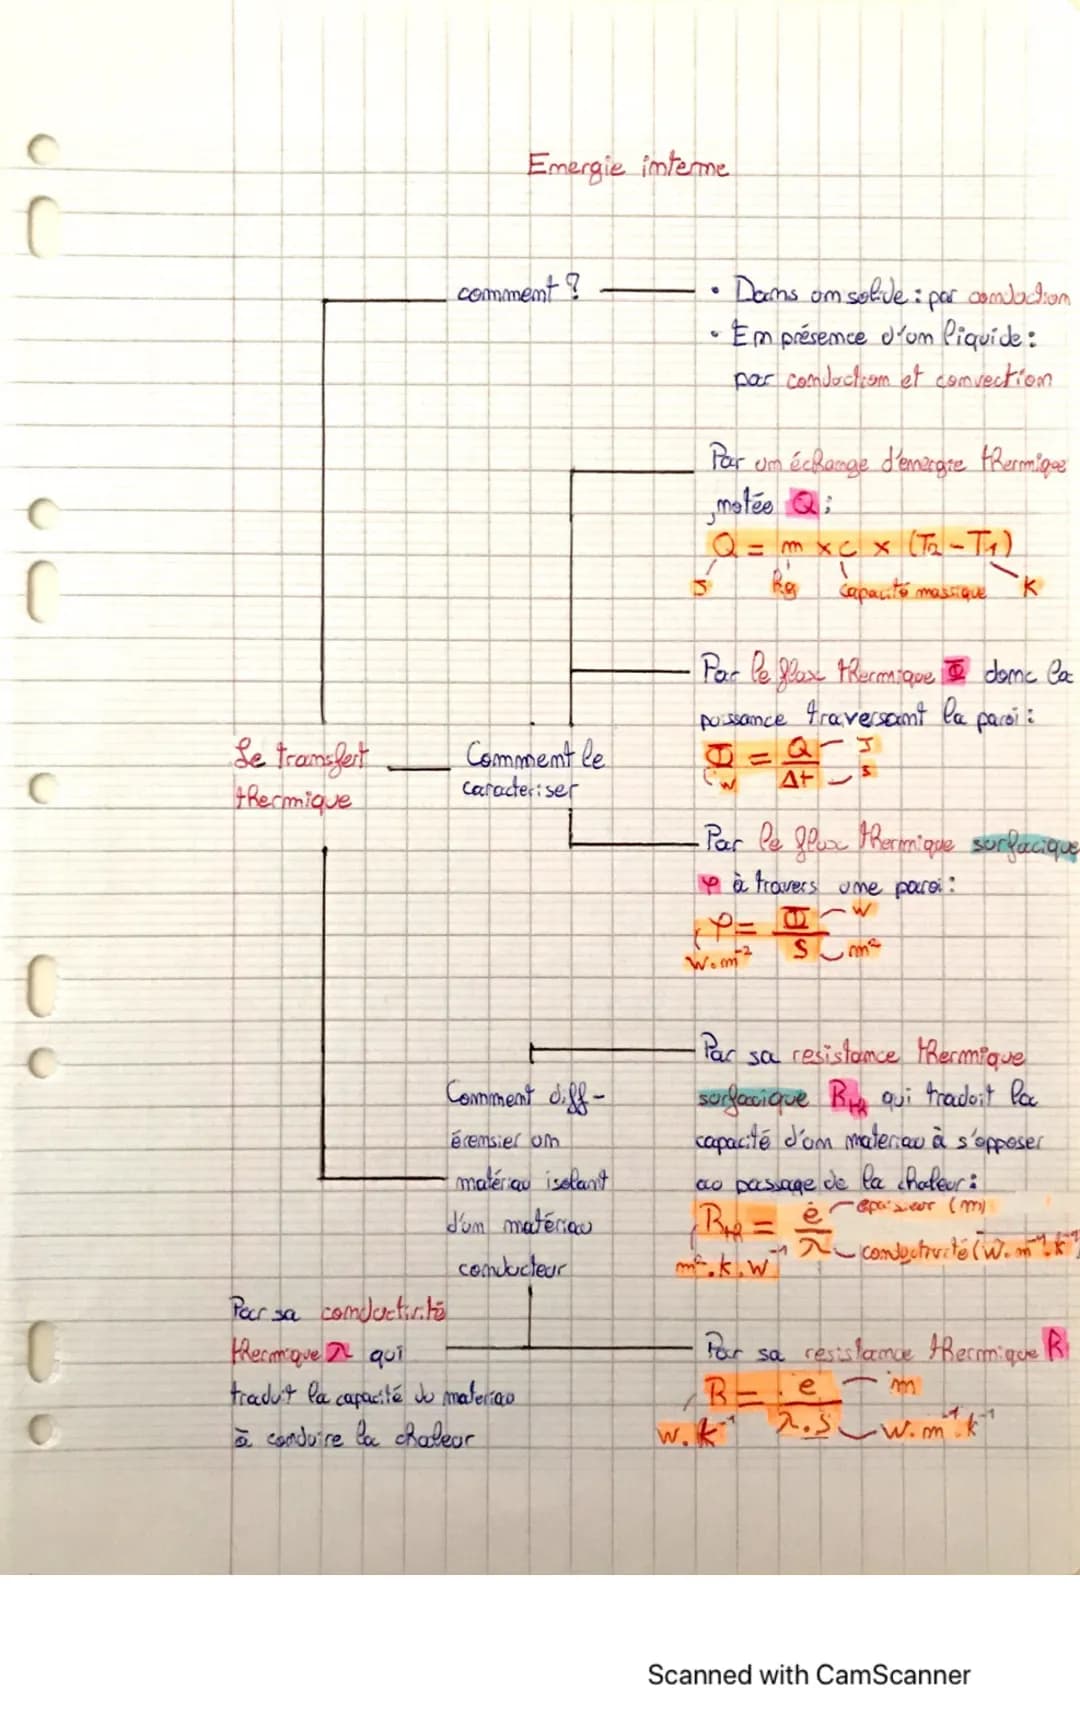 Energie interne
comment ?
• Dans un solide : par conduction
• En présence d'un liquide :
par conduction et convection
Par un échange d'energie thermique
notée Q :
Q = m x c x (T2 - T1)
J kg capacité massique K
Par le flux thermique Φ donc la
puissance traversant la paroi :
Le transfert
thermique
Comment le
caracteriser
Φ = Q / Δt
W J s
Par le flux thermique surfacique
φ à travers une paroi :
φ = Φ / S
W.m⁻² W m²
Comment diff-
érensier un
matériau isolant
d'un matériau
conducteur
Par sa resistance thermique
surfacique Rth qui traduit la
capacité d'un materiau à s'opposer
au passage de la chaleur :
Rth = e / λ
épaisseur (m)
m².k.W⁻¹ conductivité (W.m⁻¹.k⁻¹)
Par sa conductivité
thermique λ qui
traduit la capacité du materiau
à conduire la chaleur
Par sa resistance thermique R
R = e / λ.S
m
W.k⁻¹ W.m⁻¹.k⁻¹
Scanned with CamScanner